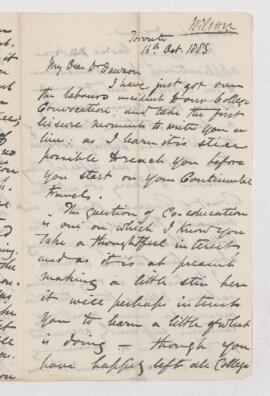 Wilson
Toronto
16th Oct. 1883
My Dear Dr Dawson
I have just got over
the labours incident to our College
Convocation; and take the first
leisure moments to write you a
line; as I learn it is still
possible to reach you before
you start on your Continental
travels.
The question of Co-education
is one on which I know you
take a thoughtful interest
and as it is at present
making a little stir here
it will perhaps interest
you to learn a little of what
is doing – though you
have happily left all College